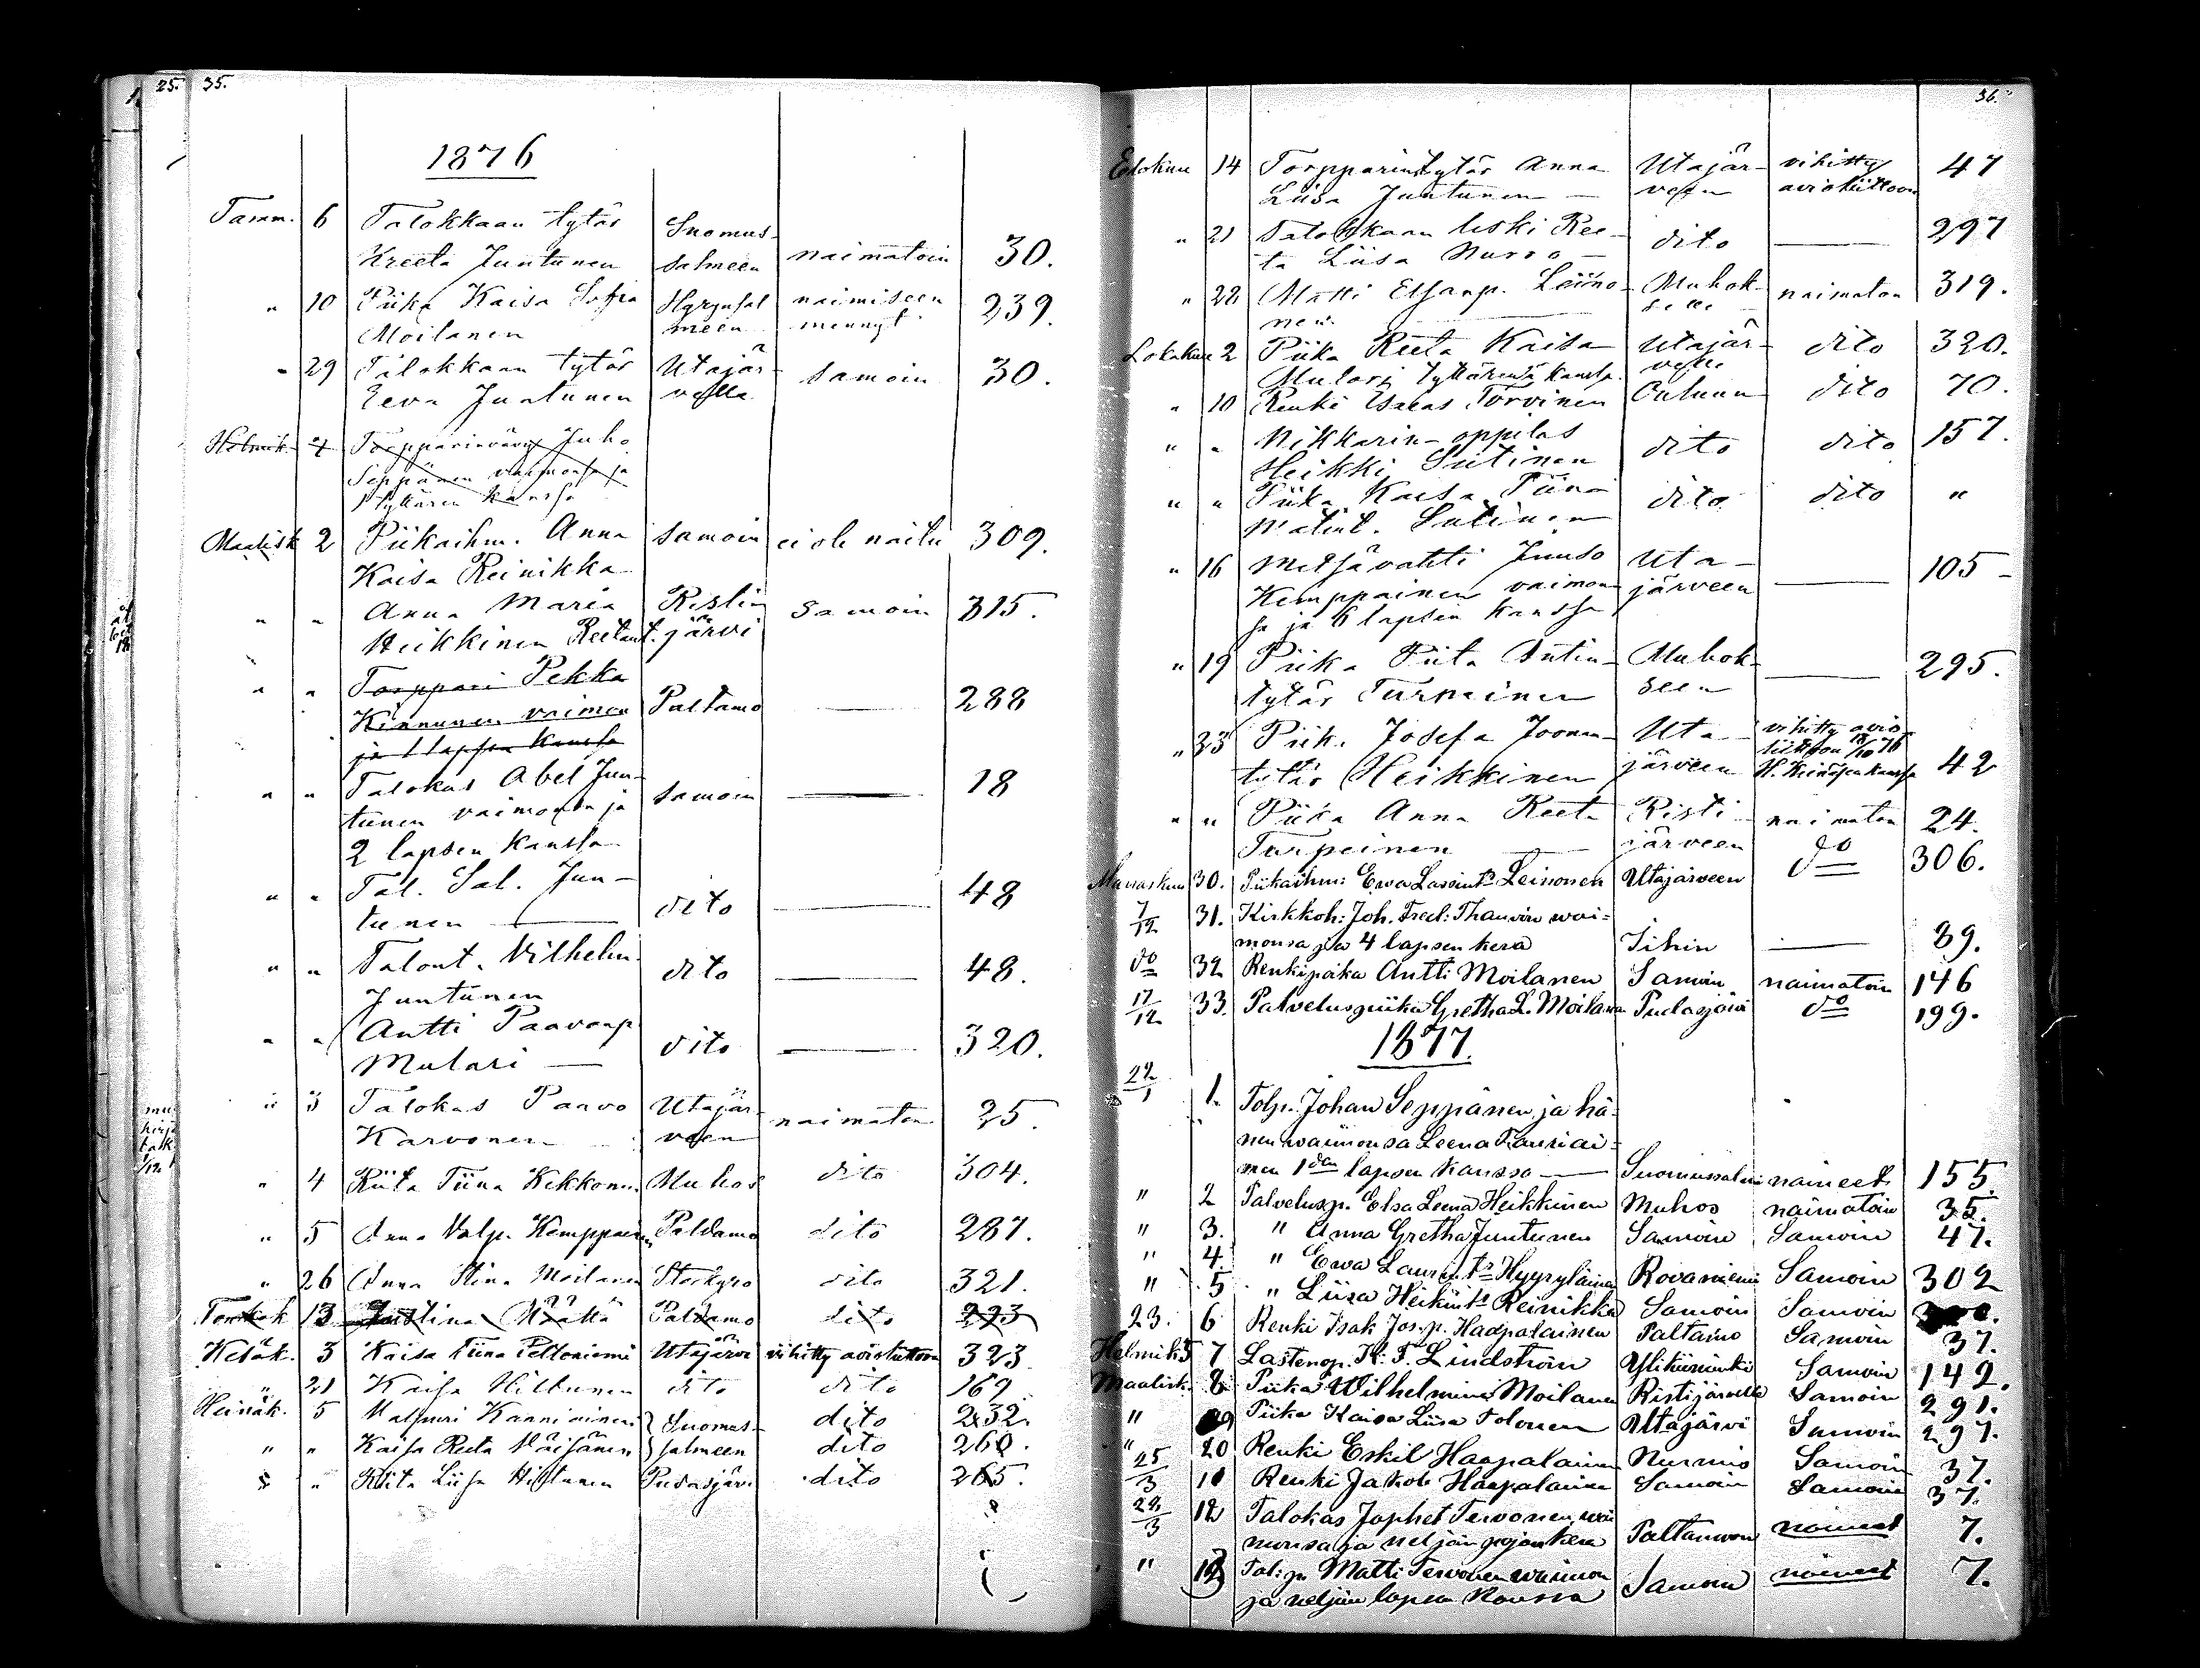 25. 35.
1876
Tamm. 6 Talokkaan tytär Suomus-
Kreeta Juntunen salmeen naimatoin 30.
" 10 Piika Kaisa Sofia Hyrynsal naimiseen 239.
Moilanen meen mennyt
" 29 Talokkaan tytär Utajär-
Eeva Juntunen vella samoin 30.
Helmik. 7 Torpparinvävy Juho
Seppänen vaimonsa ja
1 tyttären kanssa
Maalisk 2 Piikaihm. Anna samoin ei ole naitu 309.
Kaisa Reinikka
" " Anna Maria Ristin samoin 315.
Heikkinen Reetant. järvi
" " Torppari Pekka
Kinnunen vaimon Paltamo 288
ja 1 lapsen kanssa
" " Talokas Abel Jun-
tunen vaimonsa ja samoin 18
2 lapsen kanssa
" " Tal. Sal. Jun-
tunen dito 48
" " Talont. Vilhelm
Juntunen dito 48.
" " Antti Paavonp
Mulari dito 320.
" 3 Talokas Paavo Utajär-
Karvonen veen naimaton 25
" 4 Riita Tiina Kekkonen Muhos dito 304.
" 5 Anna Valp. Kemppainen Paldamo dito 287.
" 26 Anna Stina Moilanen Storkyro dito 321.
13 Määttä Paldamo dito 293
Kesäk. 3 Kaisa Tiina Peltoniemi Utajärvi vihitty avioliittoon 323
" 21 Kaisa Hiltunen dito dito 169
Heinäk. 5 Kanniainen Suomus- dito 232.
" " Kaisa Reeta Väisänen salmeen dito 260.
" " Riita Liisa Hiltunen Pudasjärv. dito 265.
36.
Elokuu 14 Torpparintytär Anna Utajär- vihitty 47
Liisa Juntunen veen avioliittoon
" 21 Talokkaan leski Ree- dito 297
ta Liisa
" 22 Matti Leino- Muhok- naimaton 319.
nen
Lokakuu 2 Piika Reeta Kaisa Utajär- dito 320.
Mulari tyttärensä kanssa. velle
" 10 Renki Esaias Torvinen Ouluun dito 70.
" " Nikkarin-oppilas dito dito 157.
Heikki Sutinen
" " Piika Kaisa Tiina dito dito "
Matint. Sutinen
" 16 Metsävahti Juuso Uta- 105
Kemppainen vaimon järveen
sa ja 6 lapsen kanssa
" 19 Piika Riita Antin- Muhok- 295.
tytär Turpeinen seen
" 23 Piik. Josefa Joonan- Uta- vihitty avio-
liittoon 15/10 76
tytär Heikkinen järveen H. Keinäsen kanssa 42
" " Piika Anna Reeta Risti- naimaton 24.
Turpeinen järveen
Marraskuu 30. Piikaihm: Ewa Lassint:r Leinonen Utajärveen do 306.
7/12 31. Kirkkoh: Joh. Fred: Thauvón wai=
monsa ja 4 lapsen kera Iihin 89.
do 32 Renkipoika Antti Moilanen Samoin naimatoin 146
17/12 33. Palveluspiika Gretha L. Moilanen Pudasjärvi do 199.
1877.
22/1 1. Tolp. Johan Seppänen ja hä-
nen waimonsa Leena Tauriai-
nen 1den lapsen kanssa Suomussalmi naineet 155.
" 2 Palvelusp. Elsa Leena Heikkinen Muhos naimatoin 35.
" 3. " Anna Gretha Juntunen Samoin Samoin 47.
" 4 " Ewa Laurint:r Hyyryläinen Rovaniemi Samoin 302
" 5 " Liisa Heikint:r Reinikka Samoin Samoin
23. 6 Renki Isak Jos.p. Haapalainen Paltamo Samoin 37.
Helmik 5 7 Lastenop. K: F. Lindström Ylikiiminki Samoin 142.
Maalisk. 8 Piika Wilhelmina Moilanen Ristijärvellä Samoin 291.
" 9 Piika Kaisa Liisa Tolonen Utajärvi Samoin 297.
" 20 Renki Eskil Haapalainen Nurmis Samoin 37.
25/3 11 Renki Jakob Haapalainen Samoin Samoin 37.
28/3 12 Talokas Japhet Tervonen wai
monsa ja neljän pojan kera Paltamoon naineet 7.
" 13 Tal: p. Matti Tervonen waimon
ja neljän lapsen kanssa Samoin naineet 7.